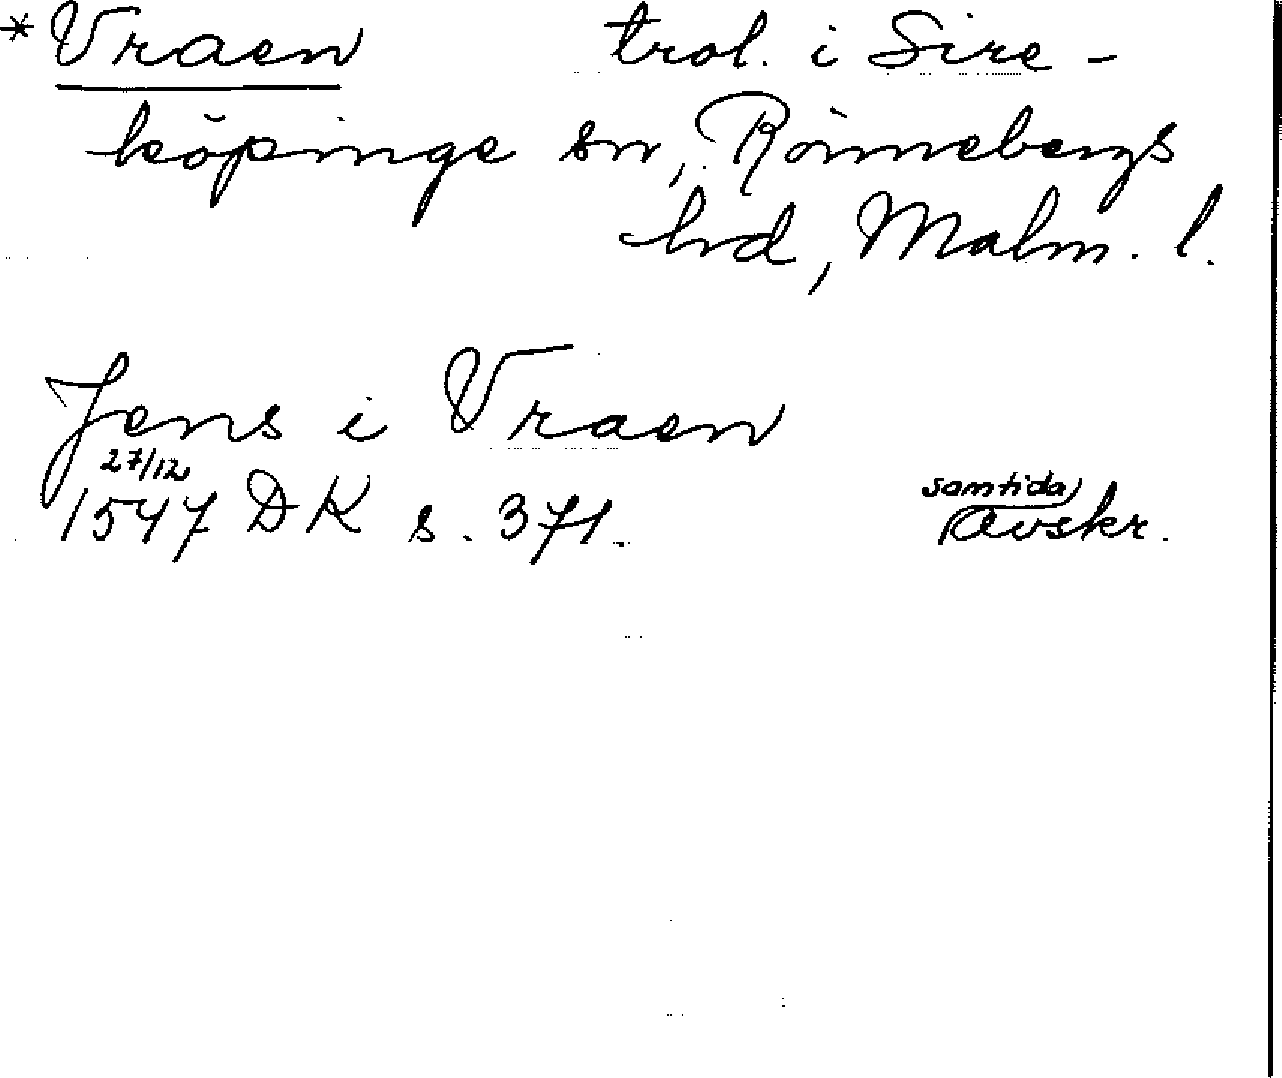 *Vraen trol. i Sire-
köpinge sn, Rönnebergs
hd, Malm. l.
Jens i Vraen
27/12
1547 DK s. 371. samtida avskr.